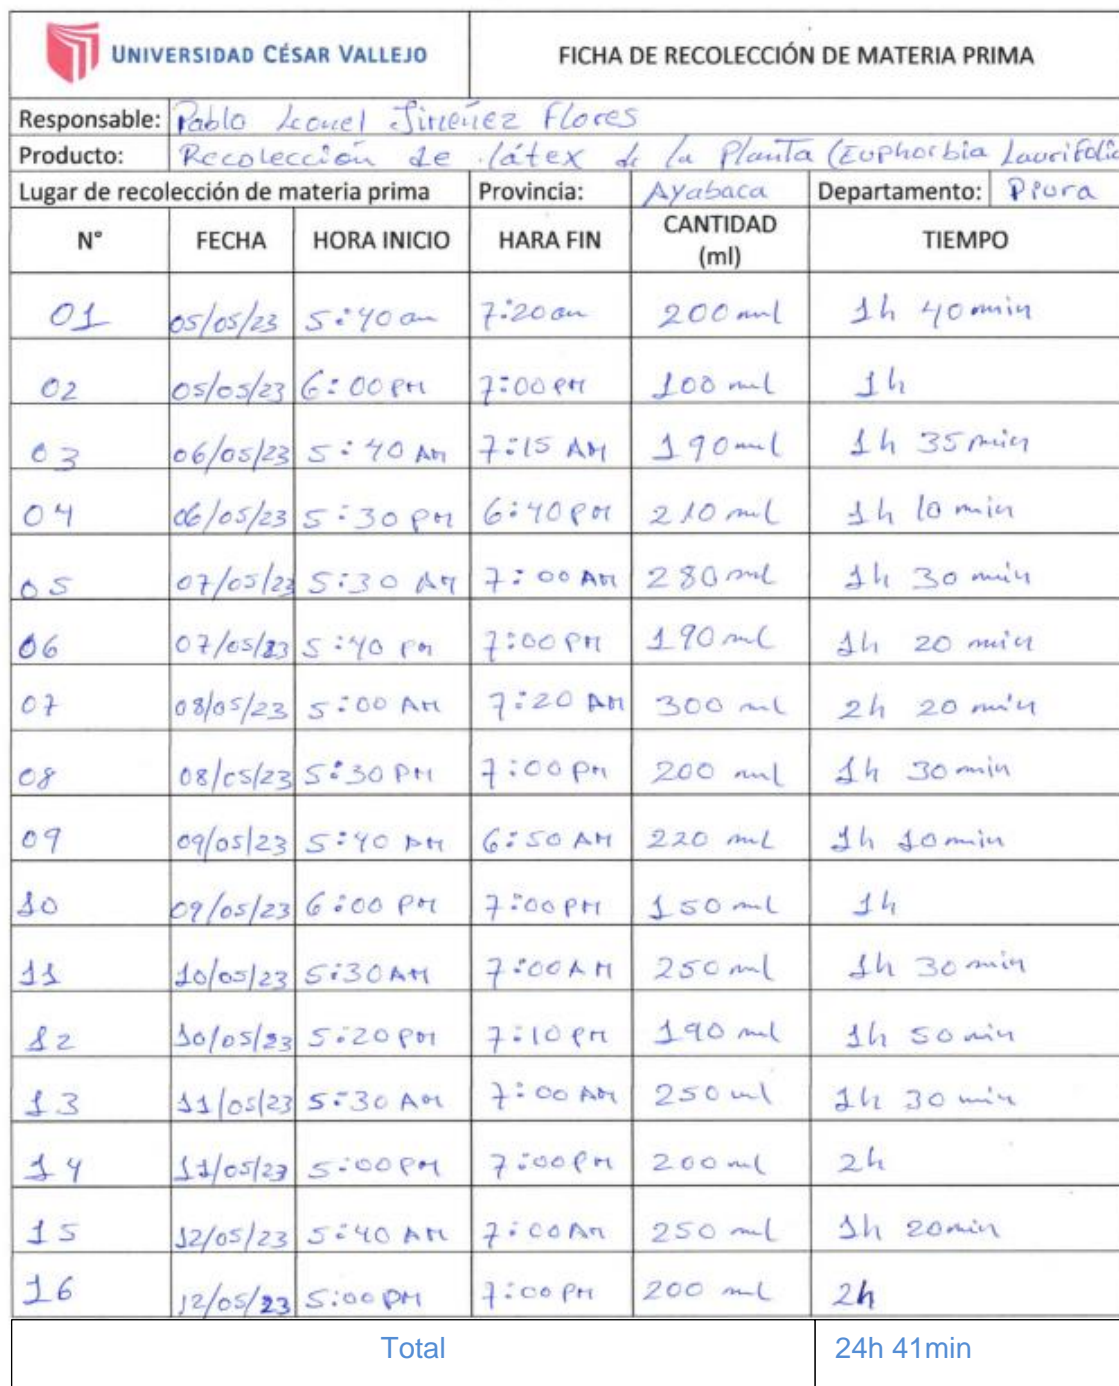 UNIVERSIDAD CÉSAR VALLEJO FICHA DE RECOLECCIÓN DE MATERIA PRIMA
Responsable: Pablo Leonel Jiménez Flores
Producto: Recolección de látex de la Planta (Euphorbia Laurifolia
Lugar de recolección de materia prima Provincia: Ayabaca Departamento: Piura
N° FECHA HORA INICIO HARA FIN CANTIDAD (ml) TIEMPO
01 05/05/23 5:40 am 7:20 am 200 ml 1h 40 min
02 05/05/23 6:00 PM 7:00 PM 100 ml 1h
03 06/05/23 5:40 AM 7:15 AM 190 ml 1h 35 min
04 06/05/23 5:30 PM 6:40 PM 210 ml 1h 10 min
05 07/05/23 5:30 AM 7:00 AM 280 ml 1h 30 min
06 07/05/23 5:40 PM 7:00 PM 190 ml 1h 20 min
07 08/05/23 5:00 AM 7:20 AM 300 ml 2h 20 min
08 08/05/23 5:30 PM 7:00 PM 200 ml 1h 30 min
09 09/05/23 5:40 AM 6:50 AM 220 ml 1h 10 min
10 09/05/23 6:00 PM 7:00 PM 150 ml 1h
11 10/05/23 5:30 AM 7:00 AM 250 ml 1h 30 min
12 10/05/23 5:20 PM 7:10 PM 190 ml 1h 50 min
13 11/05/23 5:30 AM 7:00 AM 250 ml 1h 30 min
14 11/05/23 5:00 PM 7:00 PM 200 ml 2h
15 12/05/23 5:40 AM 7:00 AM 250 ml 1h 20 min
16 12/05/23 5:00 PM 7:00 PM 200 ml 2h
Total 24h 41min